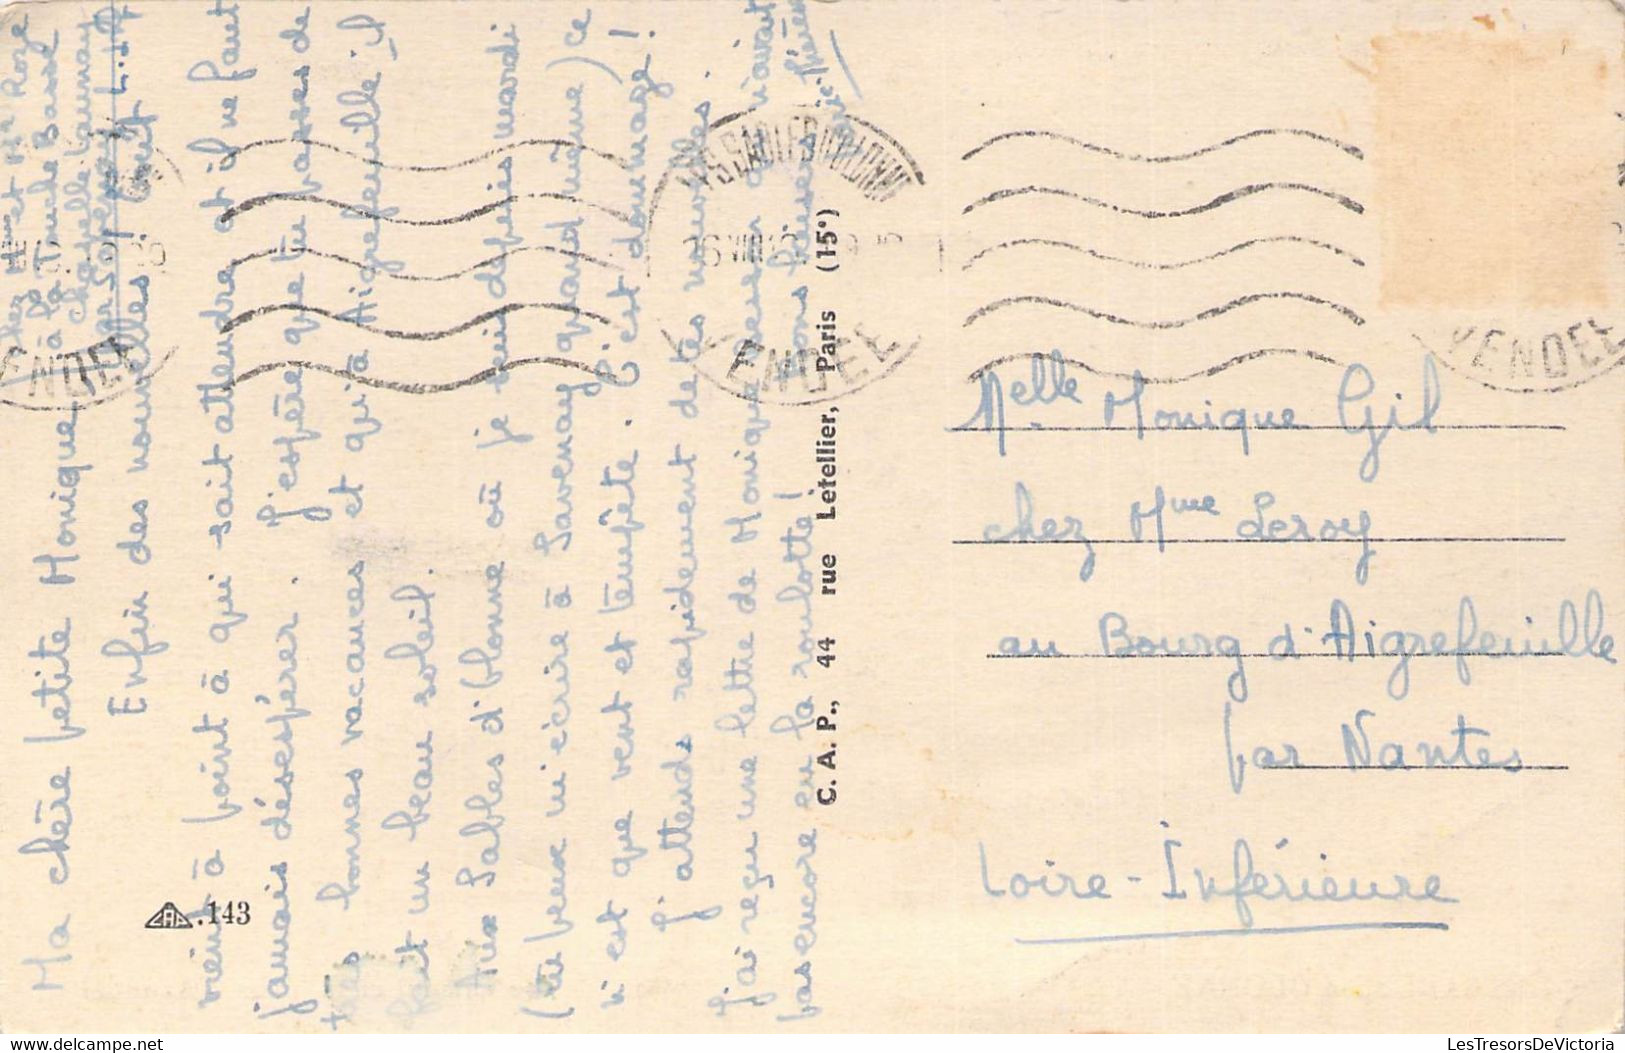 Ma chère petite Monique,
Enfin des nouvelles ! Tout
vient à point à qui sait attendre et il ne faut
jamais désespérer. J'espère que tu passes de
très bonnes vacances et qu'à Aigrefeuille il
fait un beau soleil.
Aux Sables d'Olonne où je suis depuis mardi
(tu peux m'écrire à Savenay quand même) ce
n'est que vent et tempête. C'est dommage !
J'attends rapidement de tes nouvelles.
J'ai reçu une lettre de Monique
pas encore eu la roulotte !
chez Mme et Mr Roze
à la Touche Basse
Chapelle Launay
par Savenay L.-I.
.143
C. A. P., 44 rue Letellier, Paris (15e)
VENDEE
LES SABLES D'OLONNE
VENDEE
VENDEE
Melle Monique Gil
chez Mme Leroy
au Bourg d'Aigrefeuille
par Nantes
Loire-Inférieure
LesTresorsDeVictoria.com